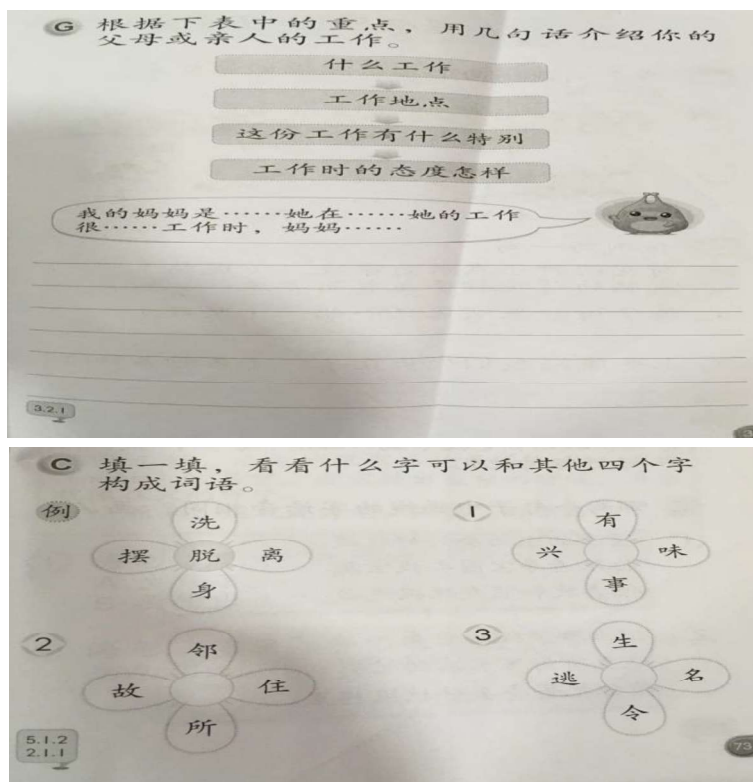 G 根据下表中的重点，用几句话介绍你的
父母或亲人的工作。
什么工作
工作地点
这份工作有什么特别
工作时的态度怎样
我的妈妈是……她在……她的工作
很……工作时，妈妈……
3.2.1
C 填一填，看看什么字可以和其他四个字
构成词语。
例
洗
摆 脱 离
身
1
有
兴 味
事
2
邻
故 住
所
3
生
逃 名
令
5.1.2
2.1.1
73